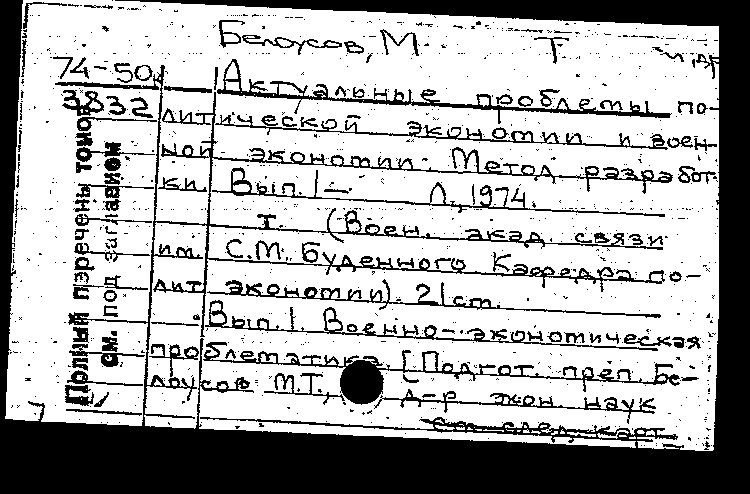 Белоусов, М. Т
и др
74-50
3832
Актуальные проблемы по-
литической экономии и воен-
ной экономии. Метод. разработ-
ки. Вып. 1 — Л., 1974.
т. (Воен. акад. связи
им. С.М. Буденного Кафедра по-
лит экономии). 21 ст.
Вып. 1. Военно-экономическая
проблематика. [Подгот. преп. Бе-
лоусов М.Т., д-р экон. наук
см след. карт.
Полный перечень томов
см. под заглавием